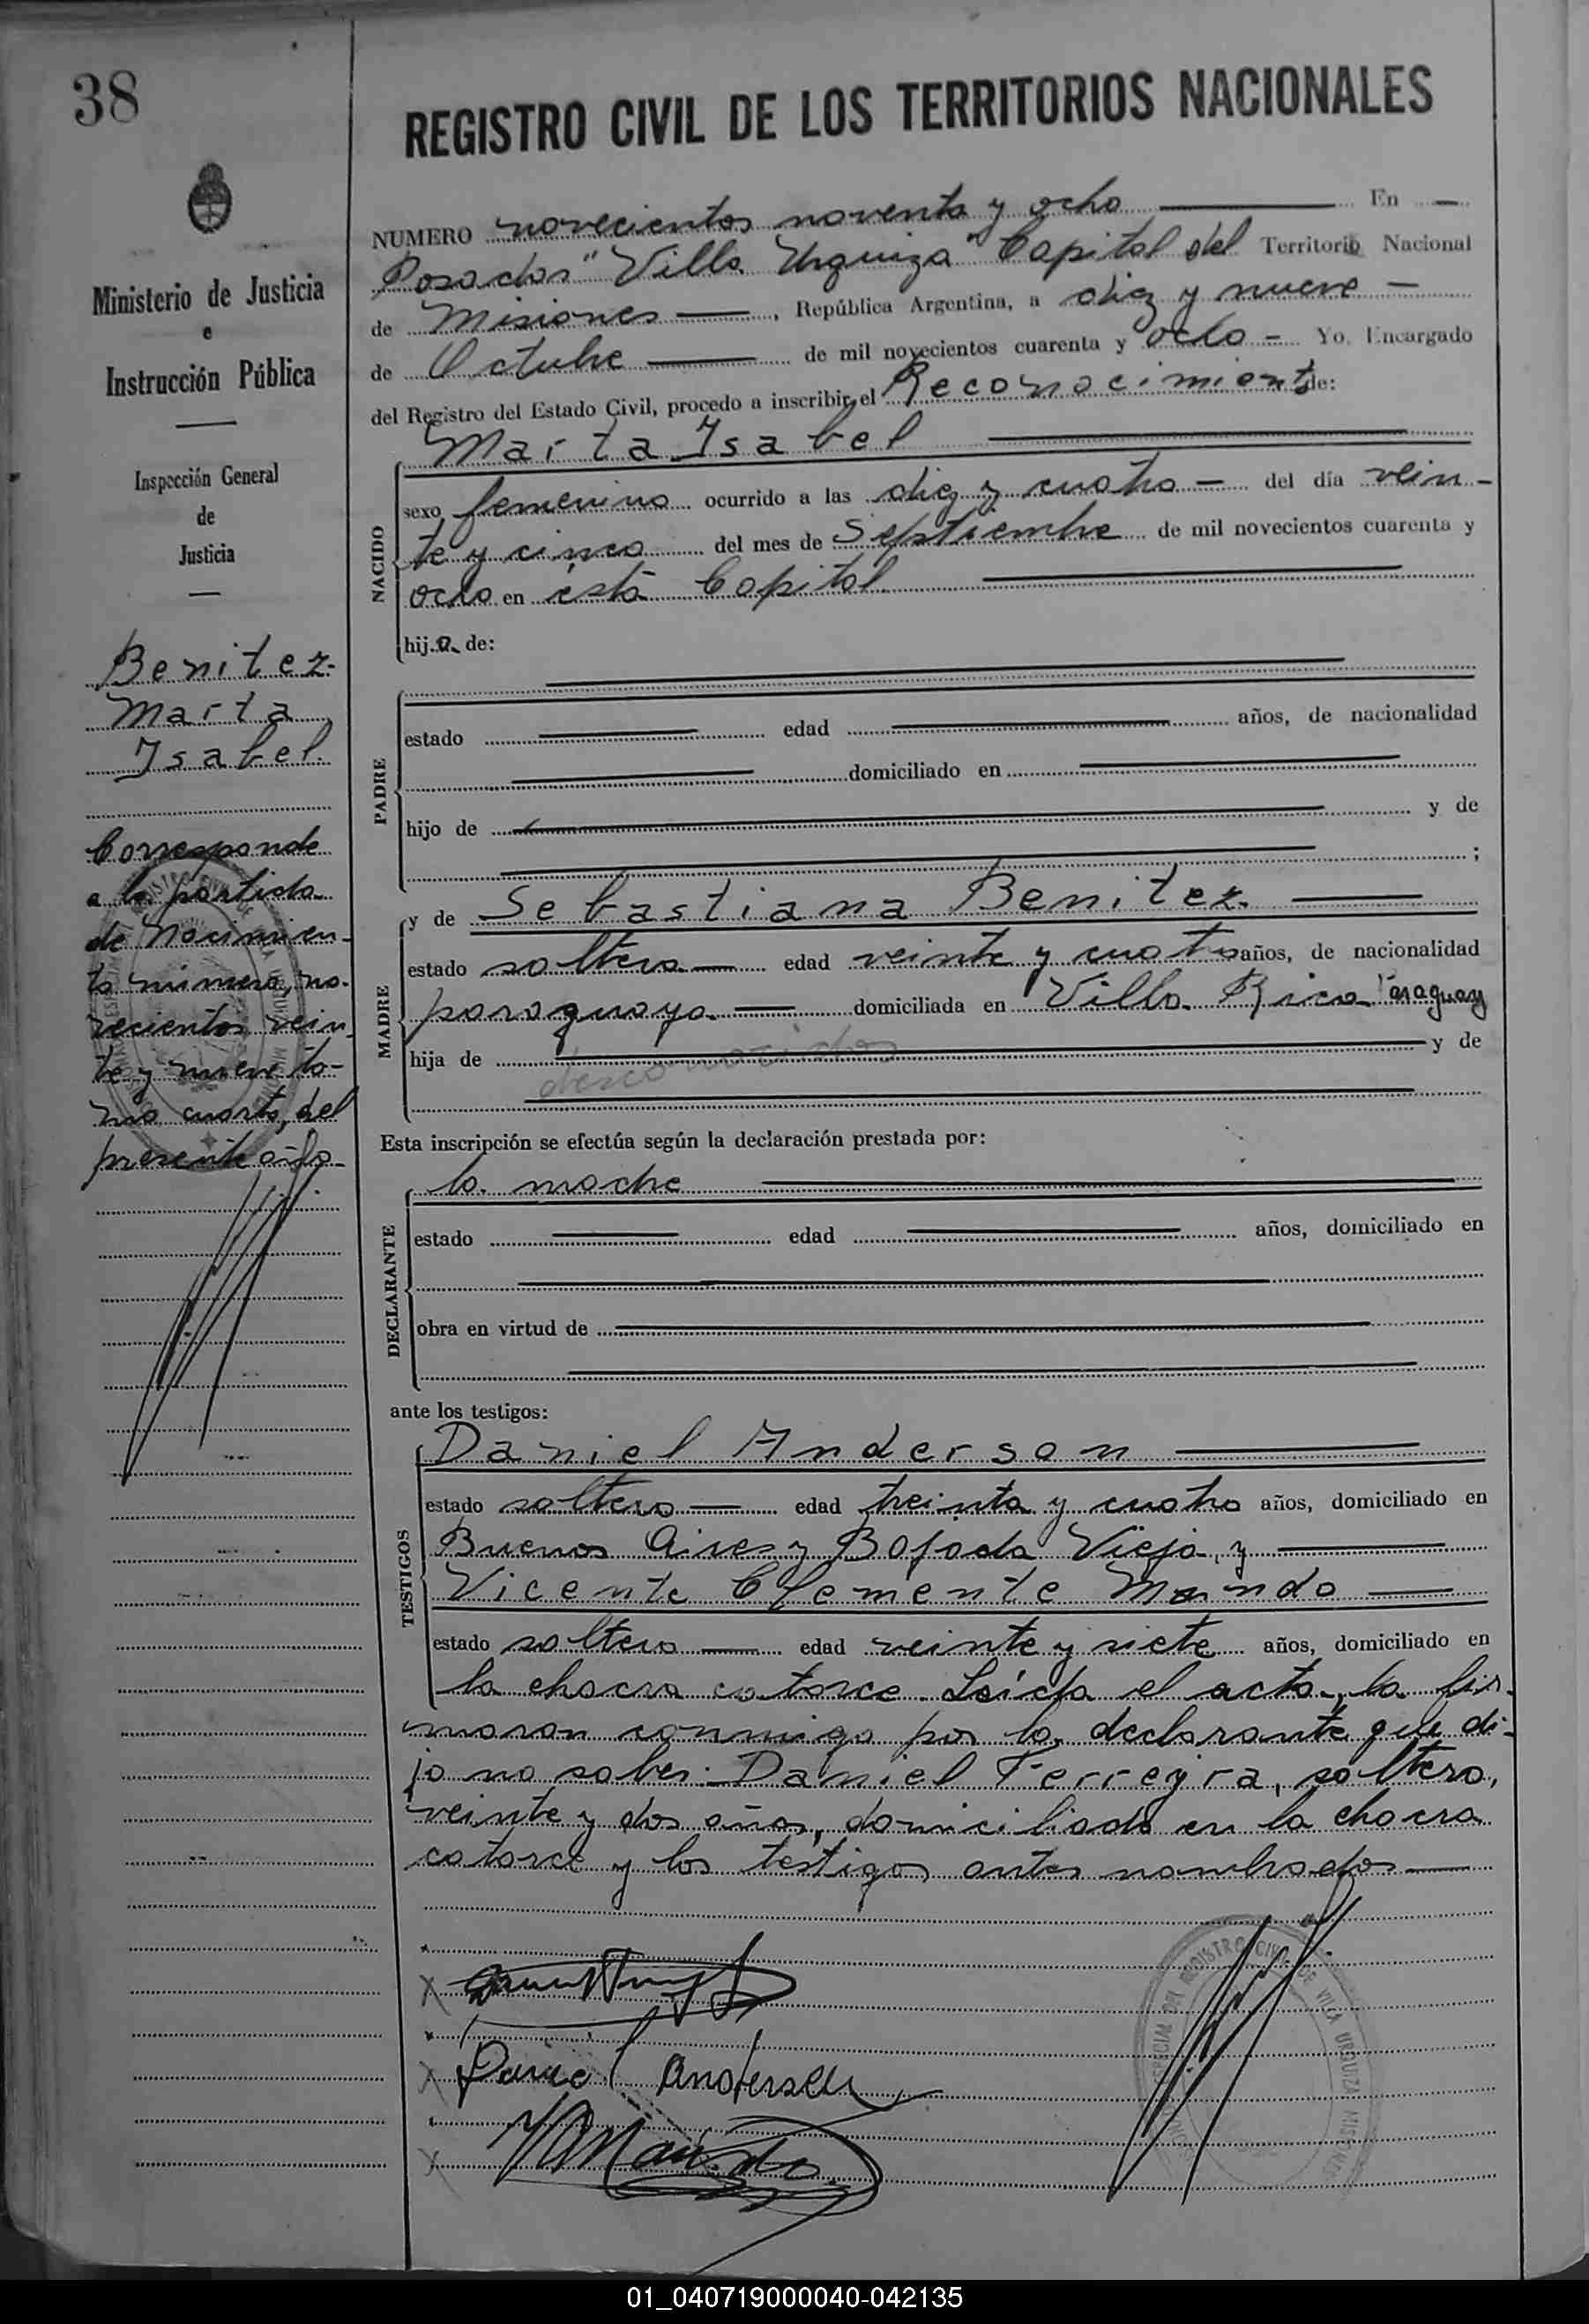 38
REGISTRO CIVIL DE LOS TERRITORIOS NACIONALES
Ministerio de Justicia
e
Instrucción Pública
Inspección General
de
Justicia
Benitez
Marta
Isabel.
Corresponde
a la partida
de Nacimien-
to número, no-
vecientos vein
te y nueve to-
mo cuarto, del
presente año
NUMERO novecientos noventa y ocho En
Posadas "Villa Urquiza" Capital del Territorio Nacional
de Misiones, República Argentina, a diez y nueve
de Octubre de mil novecientos cuarenta y ocho Yo. Encargado
del Registro del Estado Civil, procedo a inscribir el Reconocimiento de:
Marta Isabel
NACIDO
sexo femenino ocurrido a las diez y cuatro del día vein-
te y cinco del mes de Septiembre de mil novecientos cuarenta y
ocho en ésta Capital
hija de:
PADRE
estado edad años, de nacionalidad
domiciliado en
hijo de y de
;
MADRE
y de Sebastiana Benitez
estado soltera edad veinte y cuatro años, de nacionalidad
paraguaya domiciliada en Villa Rica Paraguay
hija de y de
desconocidos
Esta inscripción se efectúa según la declaración prestada por:
la madre
DECLARANTE
estado edad años, domiciliado en
obra en virtud de
ante los testigos:
TESTIGOS
Daniel Anderson
estado soltero edad treinta y cuatro años, domiciliado en
Buenos Aires y Bajada Vieja, y
Vicente Clemente Mando
estado soltero edad veinte y siete años, domiciliado en
la chacra catorce. Leída el acta, la fir-
maron conmigo por la declarante que di-
jo no saber: Daniel Ferreyra, soltero,
veinte y dos años, domiciliado en la chacra
catorce y los testigos antes nombrados
X
X Daniel Anderson
X VCMando
REGISTRO CIVIL DE VILLA URQUIZA MISIONES
01_040719000040-042135